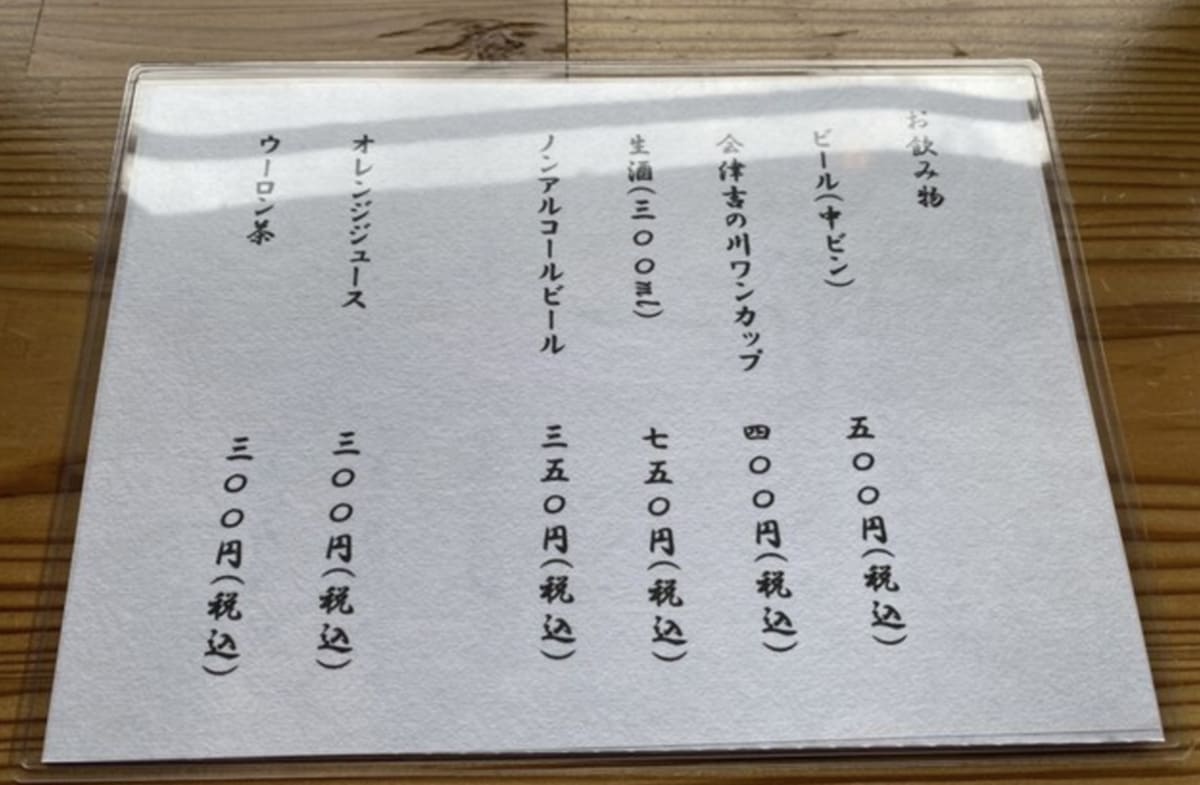 お飲み物
ビール(中ビン) 五〇〇円(税込)
会津吉の川ワンカップ 四〇〇円(税込)
生酒(三〇〇ml) 七五〇円(税込)
ノンアルコールビール 三五〇円(税込)
オレンジジュース 三〇〇円(税込)
ウーロン茶 三〇〇円(税込)